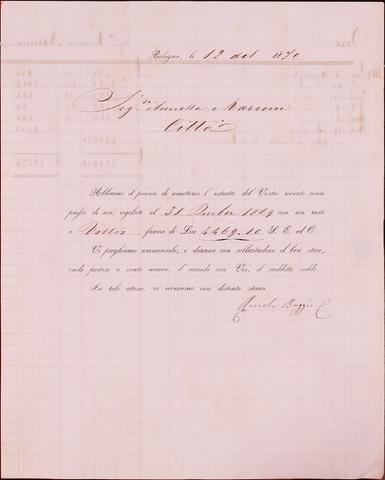 Bologna, li 12 del 1870
Sig.ri e Marconi
Città
Abbiamo il piacere di rimettervi l'estratto del Vostro riverito conto
presso di noi, regolato al 31 1869 con un resto
a Vostro favore di Lire 4469.10 S. E. ed O.
Vi preghiamo esaminarlo, e dircene con sollecitudine il ben stare,
onde portare a conto nuovo, d'accordo con Voi, il suddetto saldo.
In tale attesa, vi riveriamo con distinta stima.